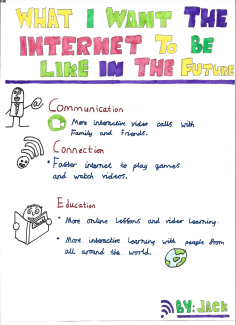 WHAT I WANT THE
INTERNET TO BE
LIKE IN THE FUTURE
Communication
More interactive video calls with
Family and Friends.
Connection
• Faster internet to play games
and watch videos.
Education
• More online lessons and video learning.
• More interactive learning with people from
all around the world.
BY: JACK